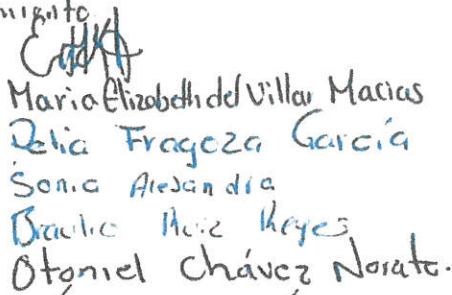 Maria Elizabeth del Villar Macias
Delia Fragoza García
Sonia Alejandra
Braulio Ruiz Reyes
Otoniel Chávez Norato.